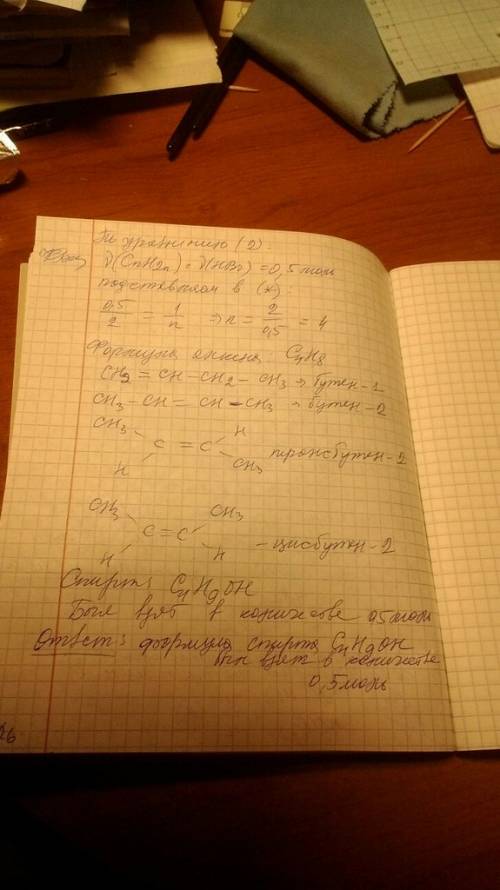 По уравнению (2):
ν(CnH2n) = ν(HBr) = 0,5 моль
подставляем в (*):
0,5/2 = 1/n ⇒ n = 2/0,5 = 4
Формула алкена: C4H8
CH2 = CH - CH2 - CH3 → бутен-1
CH3 - CH = CH - CH3 → бутен-2
CH3 H
C = C трансбутен-2
H CH3
CH3 CH3
C = C - цисбутен-2
H H
Спирт: C4H9OH
Был взят в количестве 0,5 моль
Ответ: формула спирта C4H9OH
был взят в количестве
0,5 моль